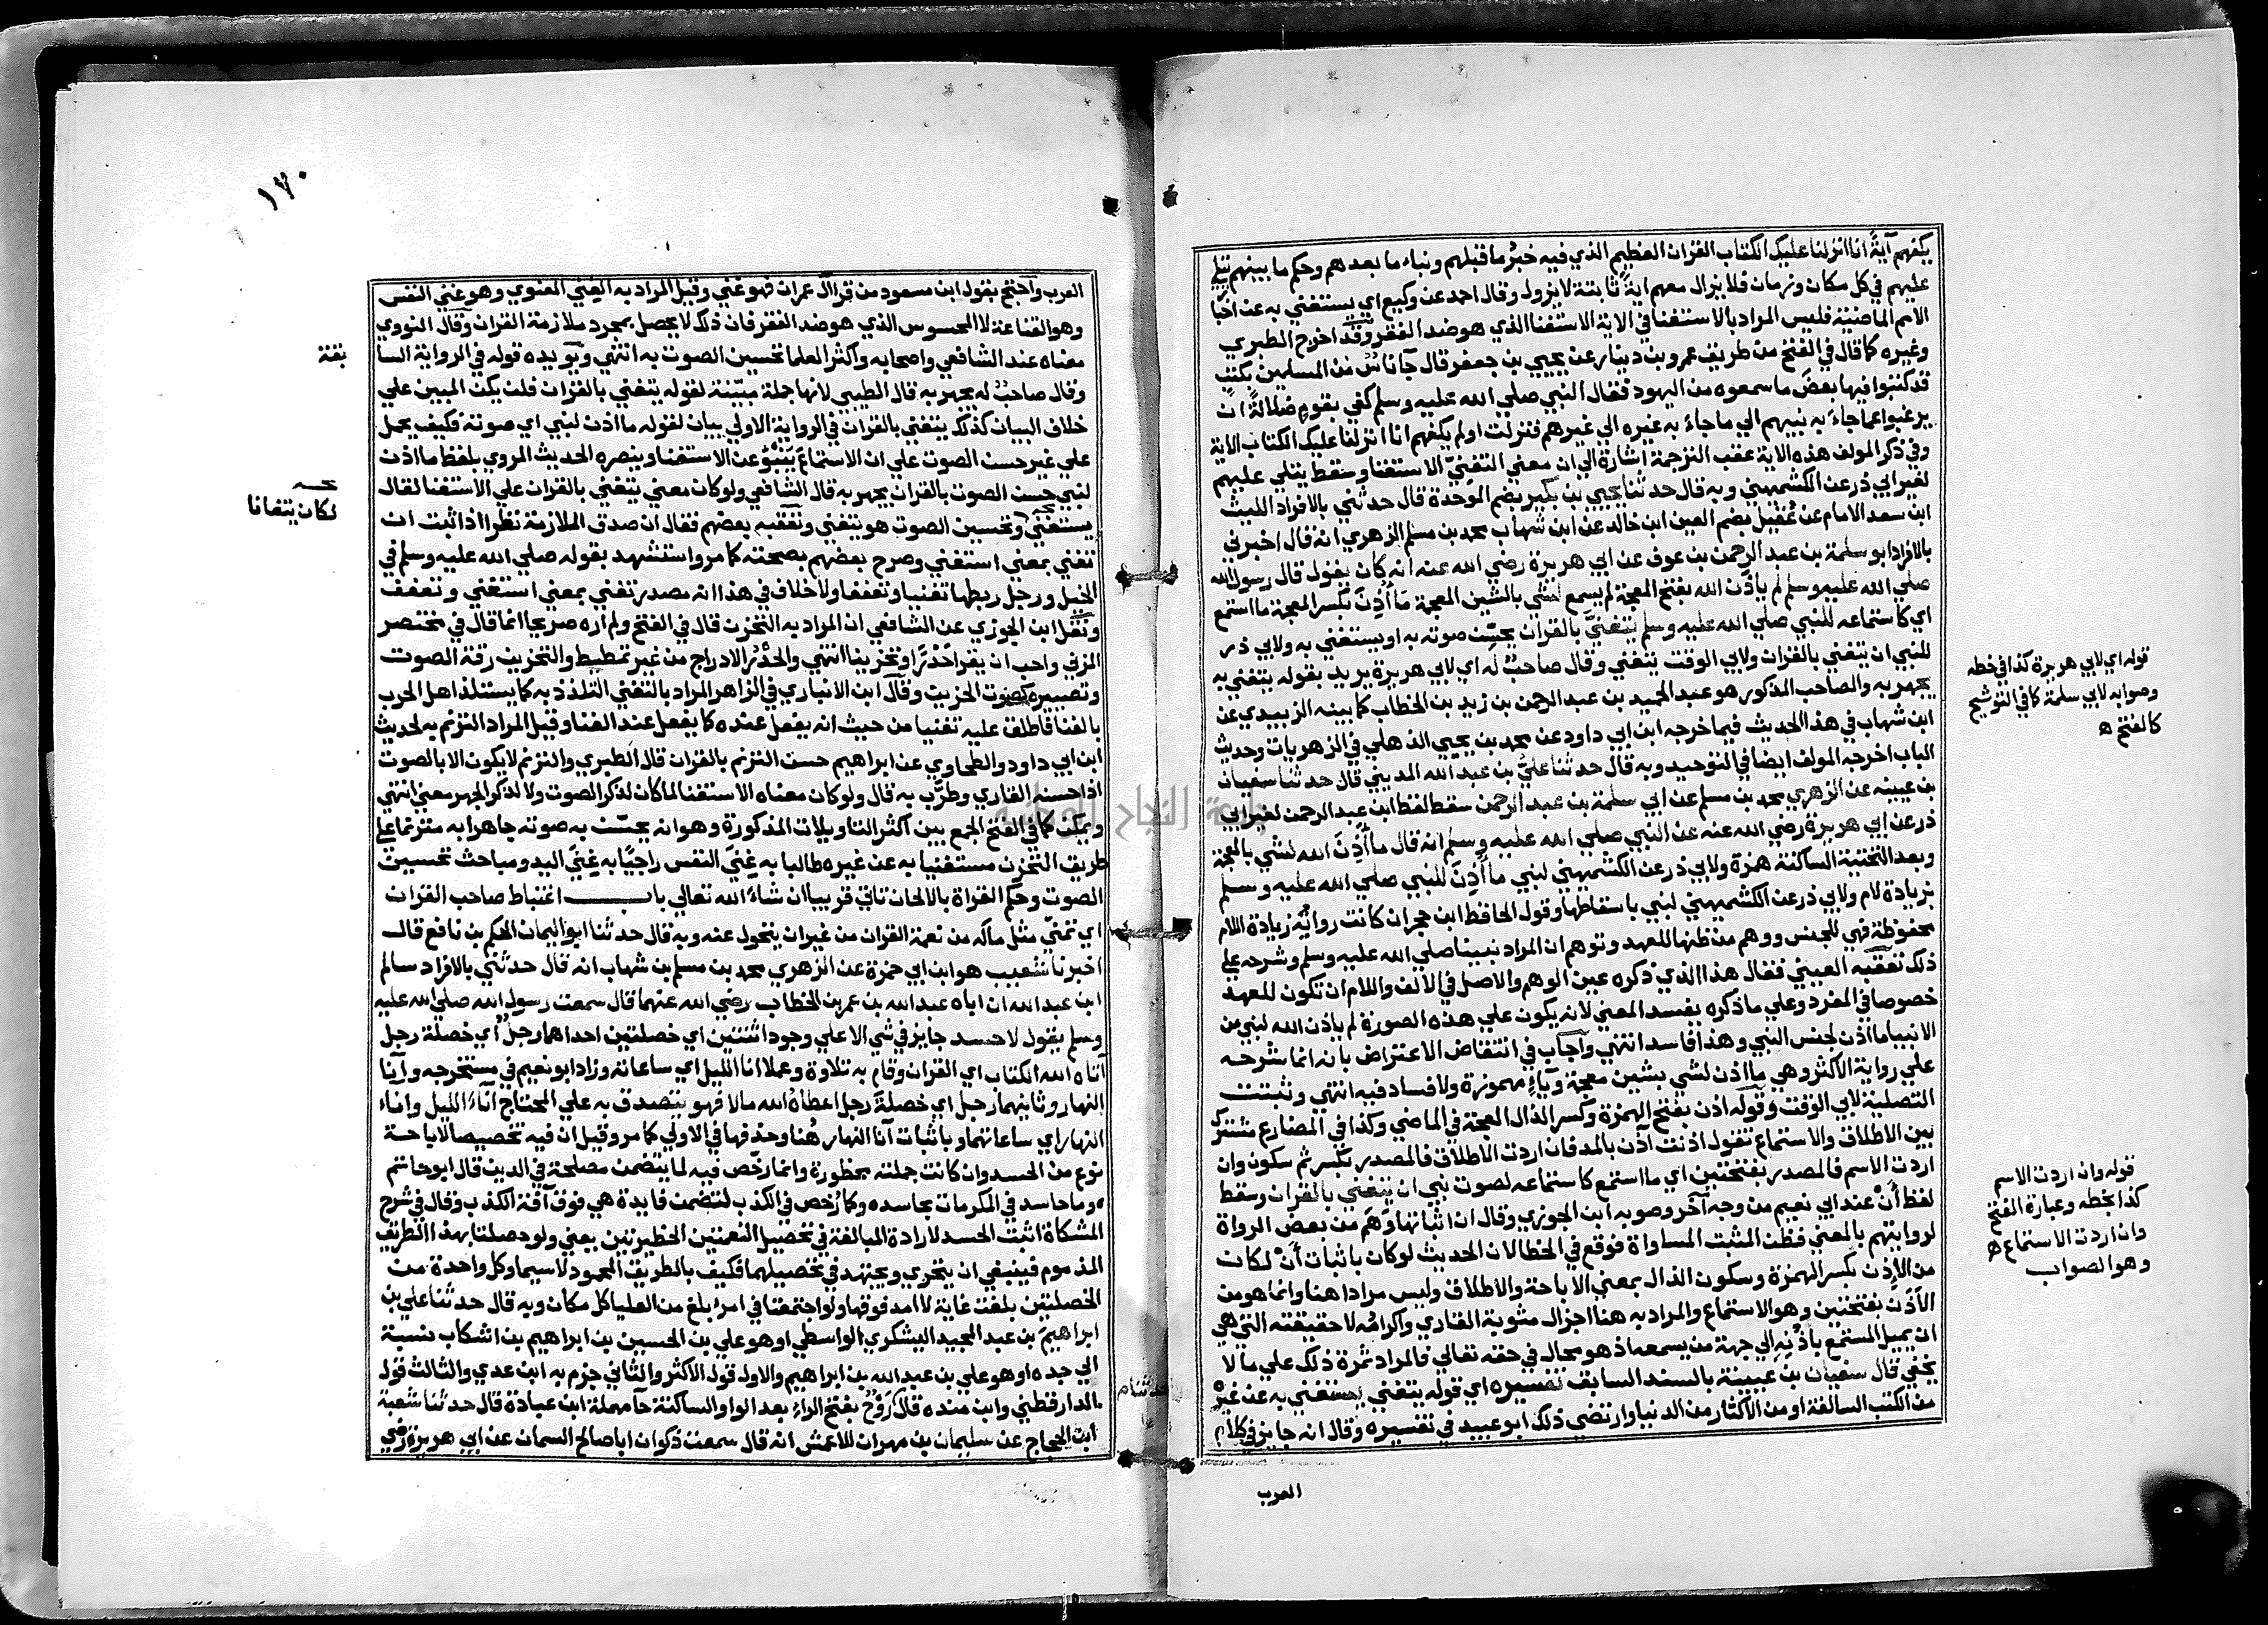 يكفهم آيةً انا انزلنا عليك الكتاب القران العظيم الذي فيه خبرُ ما قبلهم ونباء ما بعدهم وحكم ما بينهم يتلي
عليهم في كل مكان وزمان فلا يزال معهم ايةً ثابتة لا يزول وقال احمد عن وكيع اي يستغني به عن اخبار
الامم الماضية فليس المراد بالاستغنا في الاية الاستغنا الذي هو ضد الفقر وقد اخرج الطبري
وغيره كما قال في الفتح من طريق عمرو بن دينار عن يحيي بن جعفر قال جآ ناسٌ من المسلمين بكتب
قد كتبوا فيها بعضَ ما سمعوه من اليهود فقال النبي صلي الله عليه وسلم كفي بقومٍ ضلالةً ان
يرغبوا عما جاءَ به نبيهم الي ما جاءَ به غيره الي غيرهم فنزلت اولم يكفهم انا انزلنا عليك الكتاب الاية
وفي ذكر المولف هذه الاية عقب الترجمة اشارة الي ان معني التغنيّ الاستغنا وسقط يتلي عليهم
لغير ابي ذر عن الكشميهني وبه قال حدثنا يحيي بن بكير بضم الموحدة قال حدثني بالافراد الليث
ابن سعد الامام عن عُقَيل بضم العين ابن خالد عن ابن شهاب محمد بن مسلم الزهري انه قال اخبرني
بالافراد ابو سلمة بن عبد الرحمن بن عوف عن ابي هريرة رضي الله عنه انه كان يقول قال رسول الله
صلي الله عليه وسلم لم ياذَن الله بفتح المعجمة لم يسمع لشي بالشين المعجمة مَا أَذِنَ بكسر المعجمة ما استمع
اي كاستماعه للنبي صلي الله عليه وسلم يتغنيَّ بالقران يحسِّن صوته به او يستغني به ولابي ذر
للنبي ان يتغني بالقران ولابي الوقت يتغني وقال صاحبٌ له اي لابي هريرة يريد بقوله يتغني به
يجهر به والصاحب المذكور هو عبد الحميد بن عبد الرحمن بن زيد بن الخطاب كما بينه الزبيدي عن
ابن شهاب في هذا الحديث فيما خرجه ابن ابي داود عن محمد بن يحيي الذهلي في الزهريات وحديث
الباب اخرجه المولف ايضا في التوحيد وبه قال حدثنا عليُّ بن عبد الله المديني قال حدثنا سفيان
بن عيينة عن الزهري محمد بن مسلم عن ابي سلمة بن عبد الرحمن سقط لفظ ابن عبد الرحمن لغير ابي
ذر عن ابي هريرة رضي الله عنه عن النبي صلي الله عليه وسلم انه قال ما أَذِنَ الله لشي بالمعجمة
وبعد التحتية الساكنة همزة ولابي ذر عن الكشميهني لنبي ما أَذِنَ للنبي صلي الله عليه وسلم
بزيادة لام ولابي ذر عن الكشميهني لنبي باسقاطها وقول الحافظ ابن حجر ان كانت رواية زيادة اللام
محفوظة فهي للجنس ووهم من ظنها للعهد وتوهم ان المراد نبينا صلي الله عليه وسلم وشرحه علي
ذلك تعقبه العيني فقال هذا الذي ذكره عين الوهم والاصل في الالف واللام ان تكون للعهد
خصوصا في المفرد وعلي ما ذكره يفسد المعني لانه يكون علي هذه الصورة لم ياذن الله لنبي من
الانبيا ما اذن لجنس النبي وهذا فاسد انتهي واجاب في انتقاض الاعتراض بانه انما شرحه
علي رواية الاكثر وهي ما اذن لشي بشين معجمة وياءٍ مهموزة ولا فساد فيه انتهي وثبتت
التصلية لابي الوقت وقوله اذن بفتح الهمزة وكسر الذال المعجمة في الماضي وكذا في المضارع مشترك
بين الاطلاق والاستماع تقول اذنت آذن بالمد فان اردت الاطلاق فالمصدر بكسر ثم سكون وان
اردت الاسم فالمصدر بفتحتين اي ما استمع كاستماعه لصوت نبي ان يتغني بالقران وسقط
لفظ أنْ عند ابي نعيم من وجه آخر وصوبه ابن الجوزي وقال ان اثباتها وَهَم من بعض الرواة
لروايتهم بالمعني فظن المثبت المساواة فوقع في الخطا لان الحديث لو كان باثبات أَنْ لكان
من الإذن بكسر الهمزة وسكون الذال بمعني الاباحة والاطلاق وليس مرادا هنا وانما هو من
الأَذَن بفتحتين وهو الاستماع والمراد به هنا اجزال مثوبة القاري واكرامُه لا حقيقته التي هي
ان يميل المستمع باُذُنِهِ الي جهة من يسمعه اذ هو محال في حقه تعالي فالمراد ثمرة ذلك علي ما لا
يخفي قال سفيان بن عيينة بالسند السابق تفسيره اي قوله يتغني يستغني به عن غيره
من الكتب السالفة او من الاكثار من الدنيا وارتضي ذلك ابو عبيد في تفسيره وقال انه جايز في كلام
العرب
قوله اي لابي هريرة كذا في خطه
وصوابه لابي سلمة كما في التوشيح
كالفتح ه
قوله وان اردت الاسم
كذا بخطه وعبارة الفتح
وان اردت الاستماع ه
وهو الصواب
١٧٠
العرب واحتج بقول ابن مسعود من قرا آل عمران فهو غني وقيل المراد به الغِنَي المعنوي وهو غني النفس
وهو القناعة لا المحسوس الذي هو ضد الفقر فان ذلك لا يحصل بمجرد ملازمة القران وقال النووي
معناه عند الشافعي واصحابه واكثر العلما تحسين الصوت به انتهي ويويده قوله في الرواية السا
بقة
وقال صاحبٌ له يجهر به قال الطيبي لانها جملة مبيّنة لقوله يتغني بالقران فلن يكن المبين علي
خلاف البيان كذلك يتغني بالقران في الرواية الاولي بيان لقوله ما اذن لنبي اي صوته فكيف يحمل
علي غير حسن الصوت علي ان الاستماعَ يَنْبُؤُ عن الاستغنا وينصره الحديث المروي بلفظ ما اذن
لنبي حسن الصوت بالقران يجهر به قال الشافعي ولو كان معني يتغني بالقران علي الاستغنا لقال
لكان يتغانا
يستغني وتحسين الصوت هو يتغني وتعقبه بعضهم فقال ان صدق الملازمة نظرا اذا ثبت ان
تغني بمعني استغني وصرح بعضهم بصحته كما مر واستشهد بقوله صلي الله عليه وسلم في
الخيل ورجل ربطها تغنيا وتعففا ولا خلاف في هذا انه مصدر تغني بمعني استغني وتعفف
ونقل ابن الجوزي عن الشافعي ان المراد به التحزن قال في الفتح ولم اره صريحا انما قال في مختصر
المزني واحب ان يقرا حَدْرًا وتحزينا انتهي والحَدْرُ الادراج من غير تمطيط والتحزين رقة الصوت
وتصييره كصوت الحزين وقال ابن الانباري في الزاهر المراد بالتغني التلذذ به كما يستلذ اهل الطرب
بالغنا فاطلق عليه تغنيا من حيث انه يفعل عنده كما يفعل عند الغنا وقيل المراد الترنم به لحديث
ابن ابي داود والطحاوي عن ابراهيم حسن الترنم بالقران قال الطبري والترنم لا يكون الا بالصوت
اذا حسنه القاري وطرَّب به قال ولو كان معناه الاستغنا لما كان لذكر الصوت ولا لذكر الجهر معني انتهي
ويمكن كما في الفتح الجمع بين اكثر التاويلات المذكورة وهو انه يحسّن به صوته جاهرا به مترنما علي
طريق التحزن مستغنيا به عن غيره طالبا به غِنَي النفس راجيًا به غِنَي اليد ومباحث تحسين
الصوت وحكم القراة بالالحان تاتي قريبا ان شاءَ الله تعالي باب اغتباط صاحب القران
اي تمنّي مثل ماله من نعمة القران من غير ان يتحول عنه وبه قال حدثنا ابو اليمان الحكم بن نافع قال
اخبرنا شعيب هو ابن ابي حمزة عن الزهري محمد بن مسلم بن شهاب انه قال حدثني بالافراد سالم
ابن عبد الله ان اباه عبد الله بن عمر بن الخطاب رضي الله عنهما قال سمعت رسول الله صلي الله عليه
وسلم يقول لا حسد جايز في شي الا علي وجود اثنتين اي خصلتين احداهما رجلٌ اي خصلة رجل
آتاه الله الكتاب اي القران وقام به تلاوة وعملا انا الليل اي ساعاته وزاد ابو نعيم في مستخرجه وآنا
النهار وثانيهما رجل اي خصلةُ رجل اعطاهُ الله مالا فهو يتصدق به علي المحتاج آناءَ الليل واناء
النهار اي ساعاتهما وباثبات آنا النهار هُنا وحذفها في الاولي كما مر وقيل ان فيه تخصيصا لاباحة
نوع من الحسد وان كانت جملته محظورة وانما رخّص فيه لما يتضمن مصلحة في الدين قال ابو حاتم
ه وما حاسد في المكرمات بحاسده وكما رُخص في الكذب لتضمن فايدة هي فوق آفة الكذب وقال في شرح
المشكاة اثبت الحسد لارادة المبالغة في تحصيل النعمتين الخطيرتين يعني ولو حصلتا بهذا الطريق
المذموم فينبغي ان يتحري ويجتهد في تحصيلهما فكيف بالطريق المحمود لا سيما وكل واحدة من
الخصلتين بلغت غاية لا امد فوقها ولو اجتمعتا في امرءٍ بلغ من العليا كل مكان وبه قال حدثنا علي بن
ابراهيمَ بن عبد المجيد اليشكري الواسطي او هو علي بن الحسين بن ابراهيم بن اشكاب نسبة
الي جده او هو علي بن عبد الله بن ابراهيم والاول قول الاكثر والثاني جزم به ابن عدي والثالث قول
الدارقطني وابن منده قال رَوْحٌ بفتح الراءِ بعد الواو الساكنة حآ مهملة ابن عبادة قال حدثنا شعبة
ابن الحجاج عن سليمان بن مهران الاعمش انه قال سمعت ذكوان ابا صالح السمان عن ابي هريرة رضي